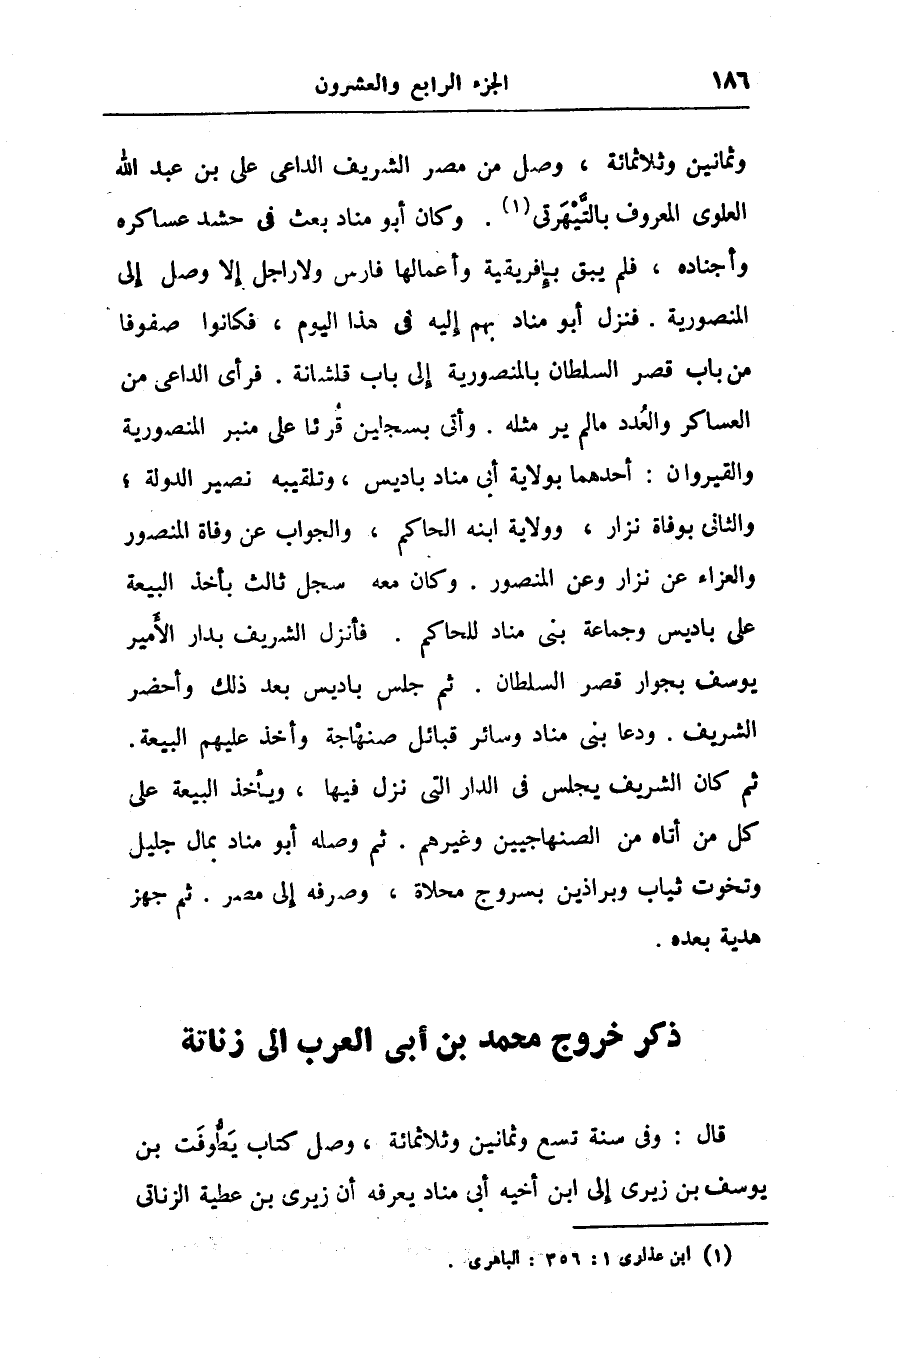 ١٨٦ الجزء الرابع والعشرون
وثمانين وثلاثمائة ، وصل من مصر الشريف الداعى على بن عبد الله
العلوى المعروف بالتَّيْهَرتى(١) . وكان أبو مناد بعث فى حشد عساكره
وأجناده ، فلم يبق بإفريقية وأعمالها فارس ولاراجل إلا وصل إلى
المنصورية . فنزل أبو مناد بهم إليه فى هذا اليوم ، فكانوا صفوفا
من باب قصر السلطان بالمنصورية إلى باب قلشانة . فرأى الداعى من
العساكر والعُدد مالم ير مثله . وأتى بسجلين قُرئا على منبر المنصورية
والقيروان : أحدهما بولاية أبى مناد باديس ، وتلقيبه نصير الدولة ؛
والثانى بوفاة نزار ، وولاية ابنه الحاكم ، والجواب عن وفاة المنصور
والعزاء عن نزار وعن المنصور . وكان معه سجل ثالث بأخذ البيعة
على باديس وجماعة بنى مناد للحاكم . فأنزل الشريف بدار الأمير
يوسف بجوار قصر السلطان . ثم جلس باديس بعد ذلك وأحضر
الشريف . ودعا بنى مناد وسائر قبائل صنهْاجة وأخذ عليهم البيعة .
ثم كان الشريف يجلس فى الدار التى نزل فيها ، ويأخذ البيعة على
كل من أتاه من الصنهاجيين وغيرهم . ثم وصله أبو مناد بمال جليل
وتخوت ثياب وبراذين بسروج محلاة ، وصرفه إلى مصر . ثم جهز
هدية بعده .
ذكر خروج محمد بن أبى العرب الى زناتة
قال : وفى سنة تسع وثمانين وثلاثمائة ، وصل كتاب يَطُّوفَت بن
يوسف بن زيرى إلى ابن أخيه أبى مناد يعرفه أن زيرى بن عطية الزناتى
(١) ابن عذارى ١ : ٣٥٦ : الباهرى .